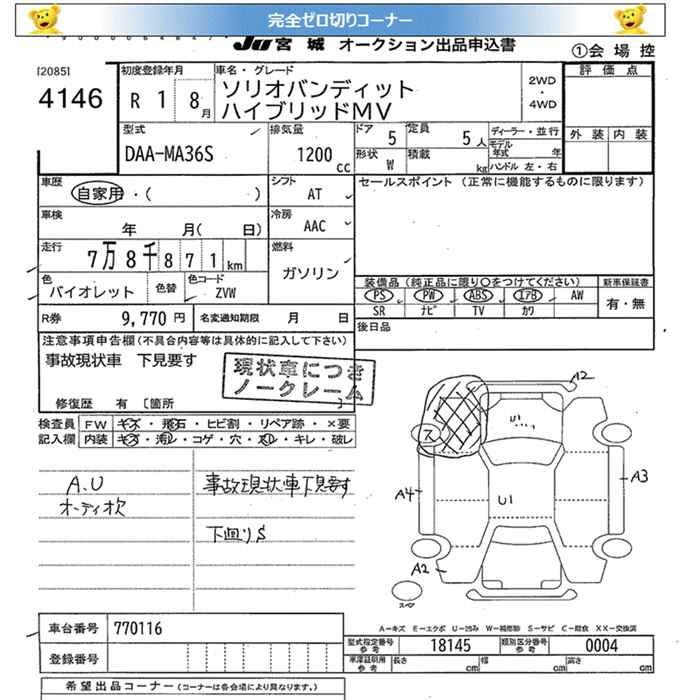 完全ゼロ切りコーナー
JU 宮城 オークション出品申込書
①会場控
[2085]
4146
初度登録年月
R 1 8 月
車名・グレード
ソリオバンディット
ハイブリッドMV
2WD
・
4WD
評価点
外装 内装
型式
DAA-MA36S
排気量
1200 cc
ドア 5
定員 5 人
形状 W
積載 kg
ディーラー・並行
モデル年式 年
ハンドル 左・右
車歴
自家用・( )
シフト
AT
セールスポイント (正常に機能するものに限ります)
車検
年 月( 日)
冷房
AAC
走行
7万8千871 km
燃料
ガソリン
色
バイオレット
色替
色コード
ZVW
装備品 (純正品に限り○をつけてください)
新車保証書
PS PW ABS エアB AW
SR ナビ TV カワ
有・無
R券 9,770 円
名変通知期限 月 日
後日品
注意事項申告欄 (不具合内容等は具体的に記入して下さい)
事故現状車 下見要す
現状車につき
ノークレーム
修復歴 有 〔箇所 〕
検査員
記入欄
FW キズ・飛石・ヒビ割・リペア跡・×要
内装 キズ・汚れ・コゲ・穴・スレ・キレ・破レ
A.U
オーディオ欠
事故現状車下見要す
下回りS
A2
ス
U
A4
U1
A3
A2
スペア
A-キズ E-エクボ U-凹み W-補修跡 S-サビ C-腐食 XX-交換済
車台番号 770116
登録番号
型式指定番号 参考 18145
類別区分番号 参考 0004
車庫証明用 参考 長さ cm 幅 cm 高さ cm
希望出品コーナー (コーナーは各会場により異なります。)